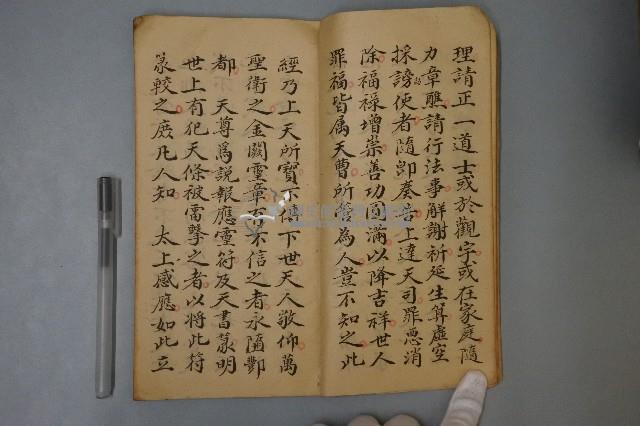 理請正一道士或於觀宇或在家庭隨
力章醮請行法事解謝祈延生筭虛空
採訪使者隨即奏 上達天司罪惡消
除福禄增崇善功圓滿以降吉祥世人
罪福皆属天曹所管為人豈不知之此
經乃上天所寳不傳下世天人敬仰萬
聖衛之金闕靈章 不信之者永隨酆
都 天尊爲説報應靈符及天書篆明
世上有犯天條被雷擊之者以將此符
篆較之庶凡人知 太上感應如此立